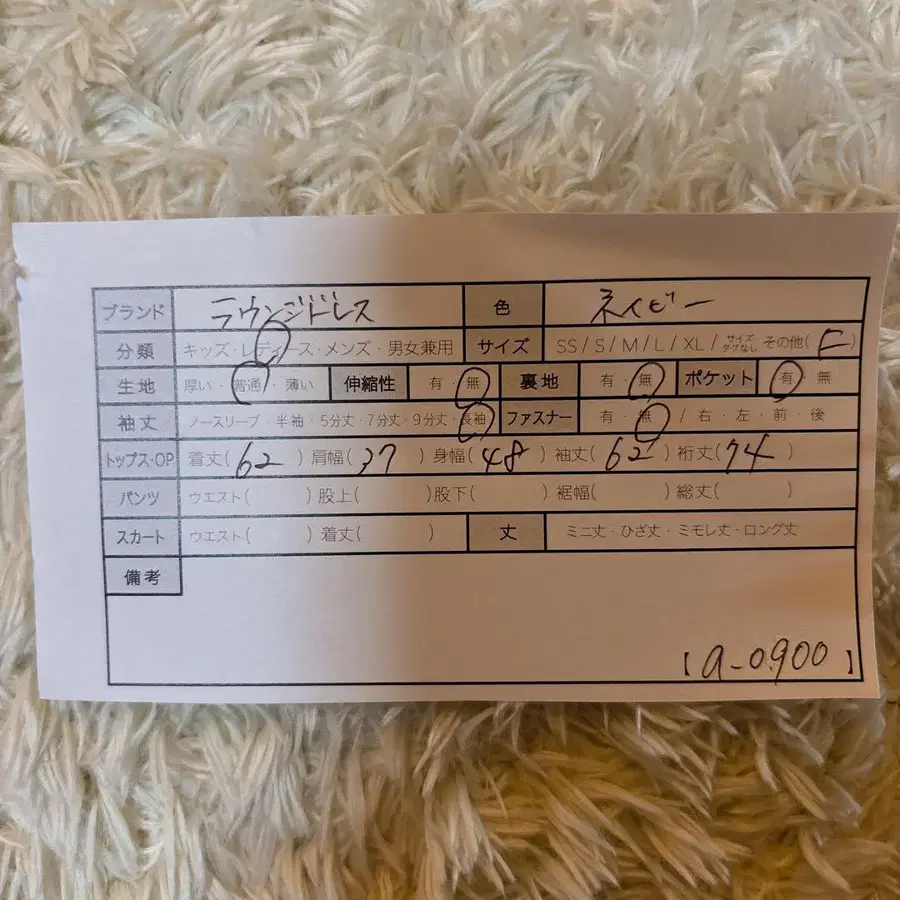 ブランド ラウンジドレス 色 ネイビー
分類 キッズ・レディース・メンズ・男女兼用 サイズ SS/S/M/L/XL/サイズタグなし その他(F)
生地 厚い・普通・薄い 伸縮性 有・無 裏地 有・無 ポケット 有・無
袖丈 ノースリーブ・半袖・5分丈・7分丈・9分丈・長袖 ファスナー 有・無/右・左・前・後
トップス・OP 着丈(62)肩幅(37)身幅(48)袖丈(62)裄丈(74)
パンツ ウエスト( )股上( )股下( )裾幅( )総丈( )
スカート ウエスト( )着丈( ) 丈 ミニ丈・ひざ丈・ミモレ丈・ロング丈
備考
【a-0900】